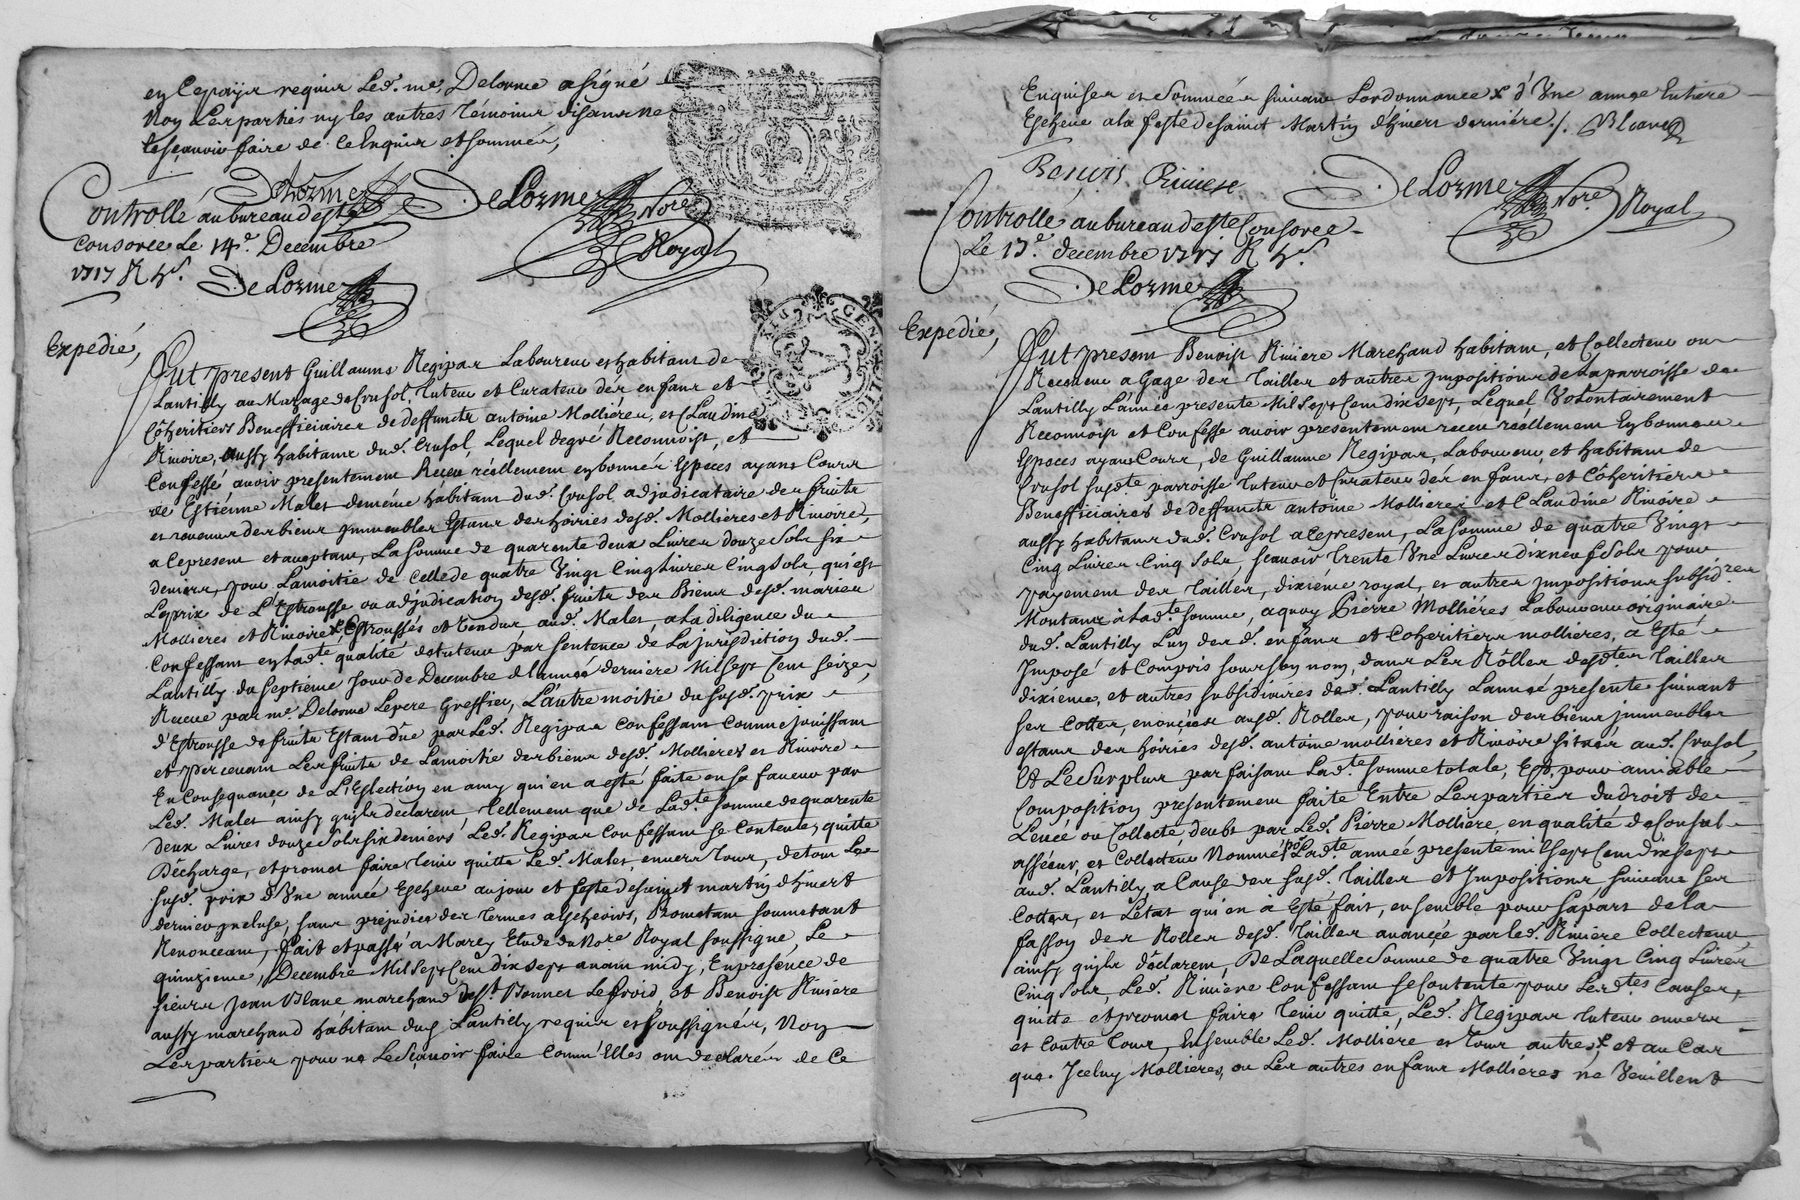 en cepaÿs requis Led. me. Delorme a signé
Non Lesparties ny les autres Témoins disans ne
lesçavoir faire de ce Enquis et sommés,
DeLorme
DeLorme Nore. Royal
Controllé aubureau deste
consorce Le 14e. Decembre
1717 R
DeLorme
Expedié,
Fut present Guillaume Regipas Laboureur et habitant de
Lantilly au Village de Crusol, Tuteur et Curateur des enfans et
Côheritiers Benefficiaires de deffuncts antoine Mollières, et Claudine
Rivoire, aussy habitans dud. Crusol, Lequel degré Reconnoist, et
Confessé avoir presentement Receu réellement en bonnes Especes ayans Cours
de Estienne Malet deméme habitant dud. Crusol adjudicataire des fruits
et revenus des biens Immeubles Estans des hoiries desd. Mollières et Rivoire,
a Cepresent et acceptant, La somme de quarente deux Livres douze Sols six
deniers, pour Lamoitié de Cellede quatre Vingt Cinq Livres Cinq Sols, qui est
Leprix de L'Estrousse ou adjudication desd. fruits des Biens desd. mariés
Mollieres et Rivoire Estroussés et Tendus aud. Malet, ala diligence du
Confessant en lad.te qualité de tuteur par sentence de La Jurisdiction dud.
Lantilly du septième Jour de Decembre de l'année derniere Mil Sept Cent seize,
Receue par me. Delorme Lepere Greffier, L'autre moitié du susd. prix
d'Estrousse de fruits Estant dûe par Led. Regipas Confessant Comme jouissant
et percevant Les fruits de Lamoitié des biens desd. Mollieres et Rivoire
En Consequance de L'Eslection en amy qui en a esté faite en sa faveur par
Led. Malet ainsy qu'ils declarent, Tellement que de Lad.te somme de quarente
deux Livres douze sols six deniers Led. Regipas Confessant se Contente, quitte
Décharge, et promet faire Tenir quitte Led. Malet, envers Tous, de tout Le
susd. prix d'Vne année Escheue au jour et feste de saint martin d'hivert
dernier incluse, sans préjudice des Termes a Escheoirs, Promettant soumettant
Renonceant, fait et passé a Marcy Etude du Nore. Royal soussigné, Le
quinzieme, Decembre Mil Sept Cent dix sept avant midy, En presence de
sieurs Jean Blanc marchand de St. Bonnet Le froid, et Benoist Riviere
aussy marchand habitant dud. Lantilly requis et soussignés, Non
Lesparties pour ne Lesçavoir faire Comm'Elles ont declarés de Ce
Enquises et sommées suivant Lordonnance x d'Vne année Entiere
Escheue ala feste de saint Martin d'hivers derniére ./. Blanc
Benois Riviere
DeLorme Nore. Royal
Controllé aubureau deste Consorce
Le 15e. decembre 1717 R
DeLorme
Expedié,
Fut present Benoist Riviere Marchand habitant, et Collecteur ou
Receveur a Gage des Tailles et autres Impositions de La parroisse de
Lantilly L'année presente Mil Sept Cent dix sept, Lequel Volontairement
Reconnoist et Confesse avoir presentement receu réellement En bonnes
Especes ayans Cours, de Guillaume Regipas, Laboureur, et habitant de
Crusol susd.te parroisse Tuteur et Curateur des enfans, et Côheritiers
Benefficiaires de deffuncts antoine Mollieres et Claudine Rivoire
aussy habitans dud. Crusol a Cepresent, La somme de quatre Vingt
Cinq Livres Cinq Sols, scavoir Trente Vne Livres dix neuf Sols pour
payement des Tailles, dixiéme royal, et autres Impositions subsid.res
Montant à Lad.te somme, a quoy Pierre Mollières Laboureur originaire
dud. Lantilly L'un desd. enfans et Coheritiers mollières, a Esté
Imposé et Compris sous son nom, dans Les Rôlles desd.tes Tailles
dixiéme, et autres subsidiaires dud. Lantilly L'année presente suivant
ses Cottes, enonçées ausd. Rolles, pour raison des biens immeubles
estans des hoiries desd. antoine mollieres et Rivoire situés aud. Crusol,
Et Le Surplus par faisant Lad.te somme totale, Est, pour amiable
Composition presentement faite Entre Lesparties du droit de
Levée ou Collecte deubt par Led. Pierre Molliere, en qualité de Consul
asséeur, et Collecteur Nommé po. Lad.te année presente mil sept Cent dix sept
aud. Lantilly a Cause des susd. Tailles et Impositions suivant ses
Cottes, et L'etat qui en a Esté fait, ensemble pour sa part de la
fasson des Rolles desd. Tailles avancée par Led. Riviere Collecteur
ainsy qu'ils déclarent, De Laquelle somme de quatre Vingt Cinq Livres
Cinq Sols, Led. Riviere Confessant se Contente pour Lesd.tes Causes,
quitte et promet faire Tenir quitte, Led. Regipas Tuteur envers
et Contre Tous, Ensemble Led. Mollière et Tous autres, x et au Cas
que Iceluy Mollieres, ou Les autres enfans Mollières ne Veuillent